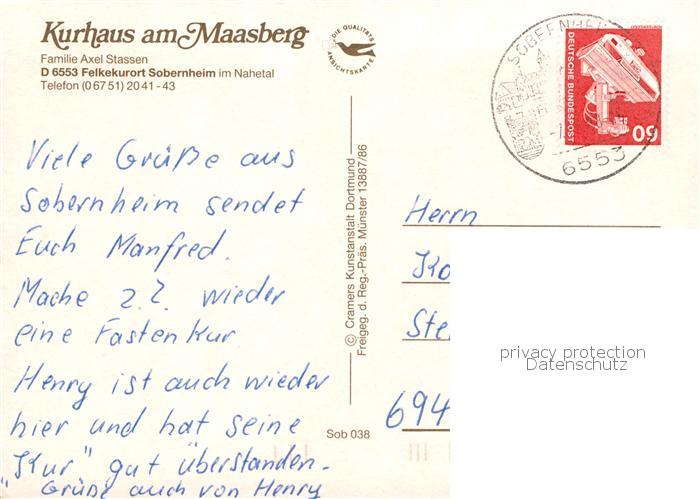 Kurhaus am Maasberg
Familie Axel Stassen
D 6553 Felkekurort Sobernheim im Nahetal
Telefon (0 67 51) 20 41 - 43
DIE QUALITÄTS
ANSICHTSKARTE
SOBERNHEIM
6553
DEUTSCHE BUNDESPOST
60
Viele Grüße aus
Sobernheim sendet
Euch Manfred.
Mache z.Z. wieder
eine Fastenkur
Henry ist auch wieder
hier und hat seine
"Kur" gut überstanden.
Grüße auch von Henry
© Cramers Kunstanstalt Dortmund
Freigeg. d. Reg.-Präs. Münster 13887/86
Sob 038
Herrn
Ko
Ste
694
privacy protection
Datenschutz